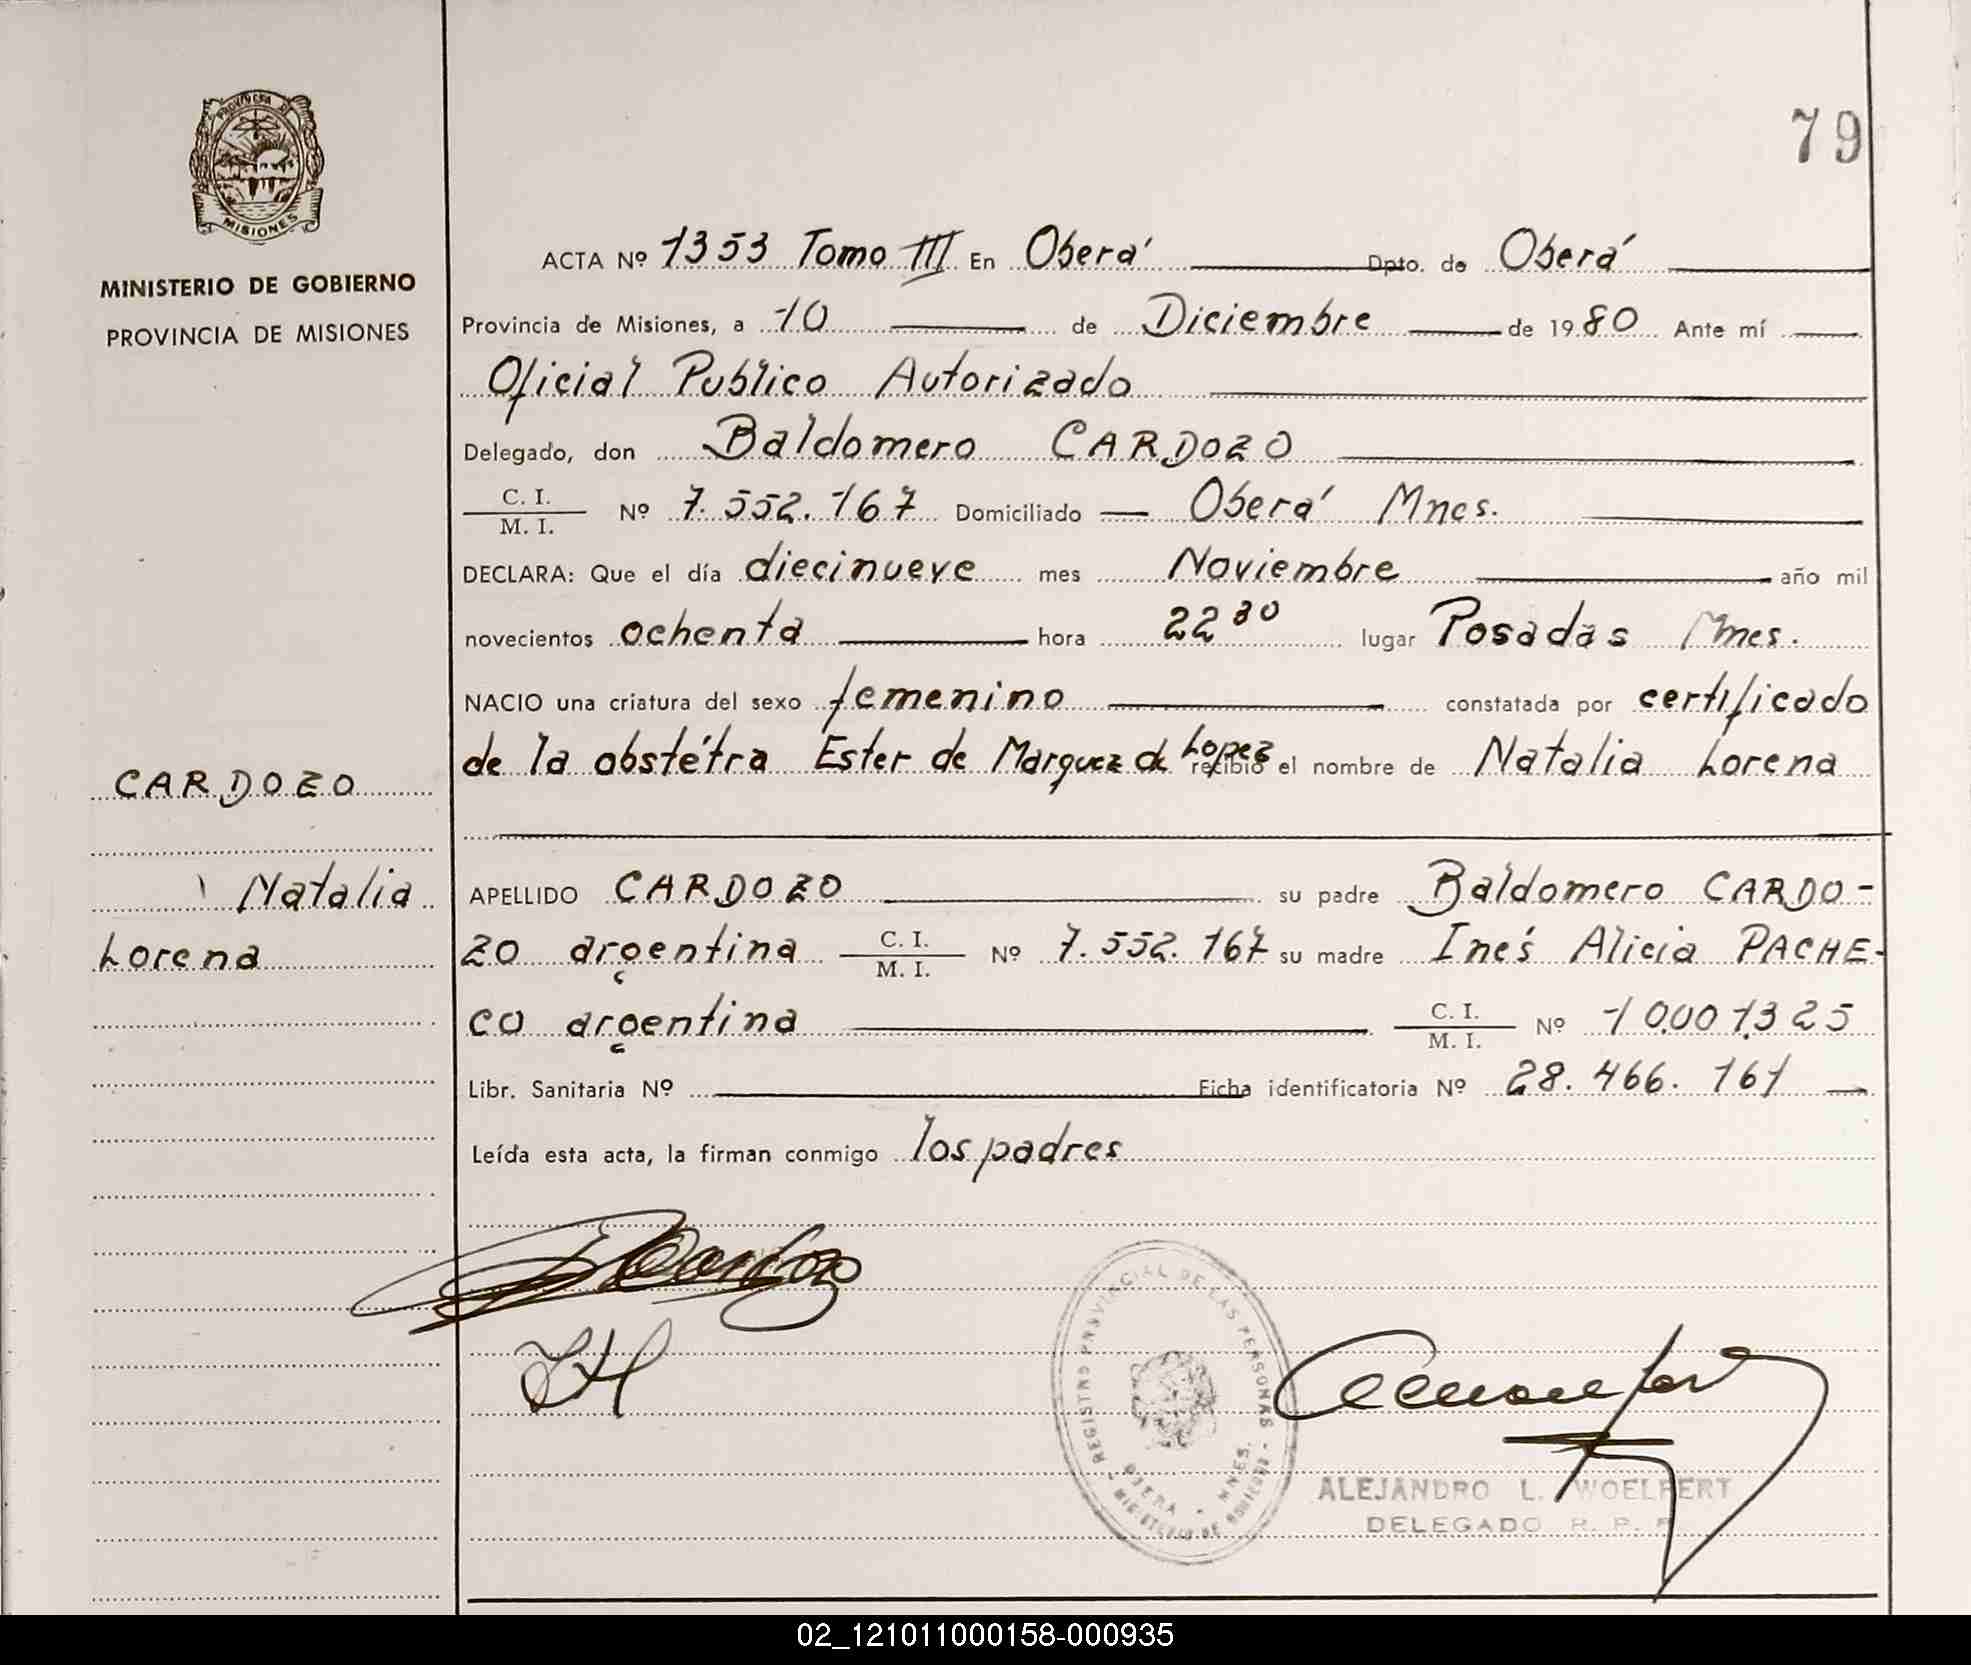 79
PROVINCIA DE
MISIONES
MINISTERIO DE GOBIERNO
PROVINCIA DE MISIONES
CARDOZO
Natalia
Lorena
ACTA Nº 1353 Tomo III En Oberá Dpto. de Oberá
Provincia de Misiones, a 10 de Diciembre de 1980 Ante mí
Oficial Publico Autorizado
Delegado, don Baldomero CARDOZO
C. I.
M. I.
Nº 7.552.167 Domiciliado Oberá Mnes.
DECLARA: Que el día diecinueve mes Noviembre año mil
novecientos ochenta hora 22 30 lugar Posadas Mnes.
NACIO una criatura del sexo femenino constatada por certificado
de la obstétra Ester de Marquez de Lopez recibió el nombre de Natalia Lorena
APELLIDO CARDOZO su padre Baldomero CARDO-
ZO argentina C. I. M. I. Nº 7.552.167 su madre Inés Alicia PACHE-
CO argentina C. I. M. I. Nº 10.001.325
Libr. Sanitaria Nº Ficha identificatoria Nº 28.466.161
Leída esta acta, la firman conmigo los padres
REGISTRO PROVINCIAL DE LAS PERSONAS
OBERA - MNES.
ALEJANDRO L. WOELFERT
DELEGADO R. P. P.
02_121011000158-000935